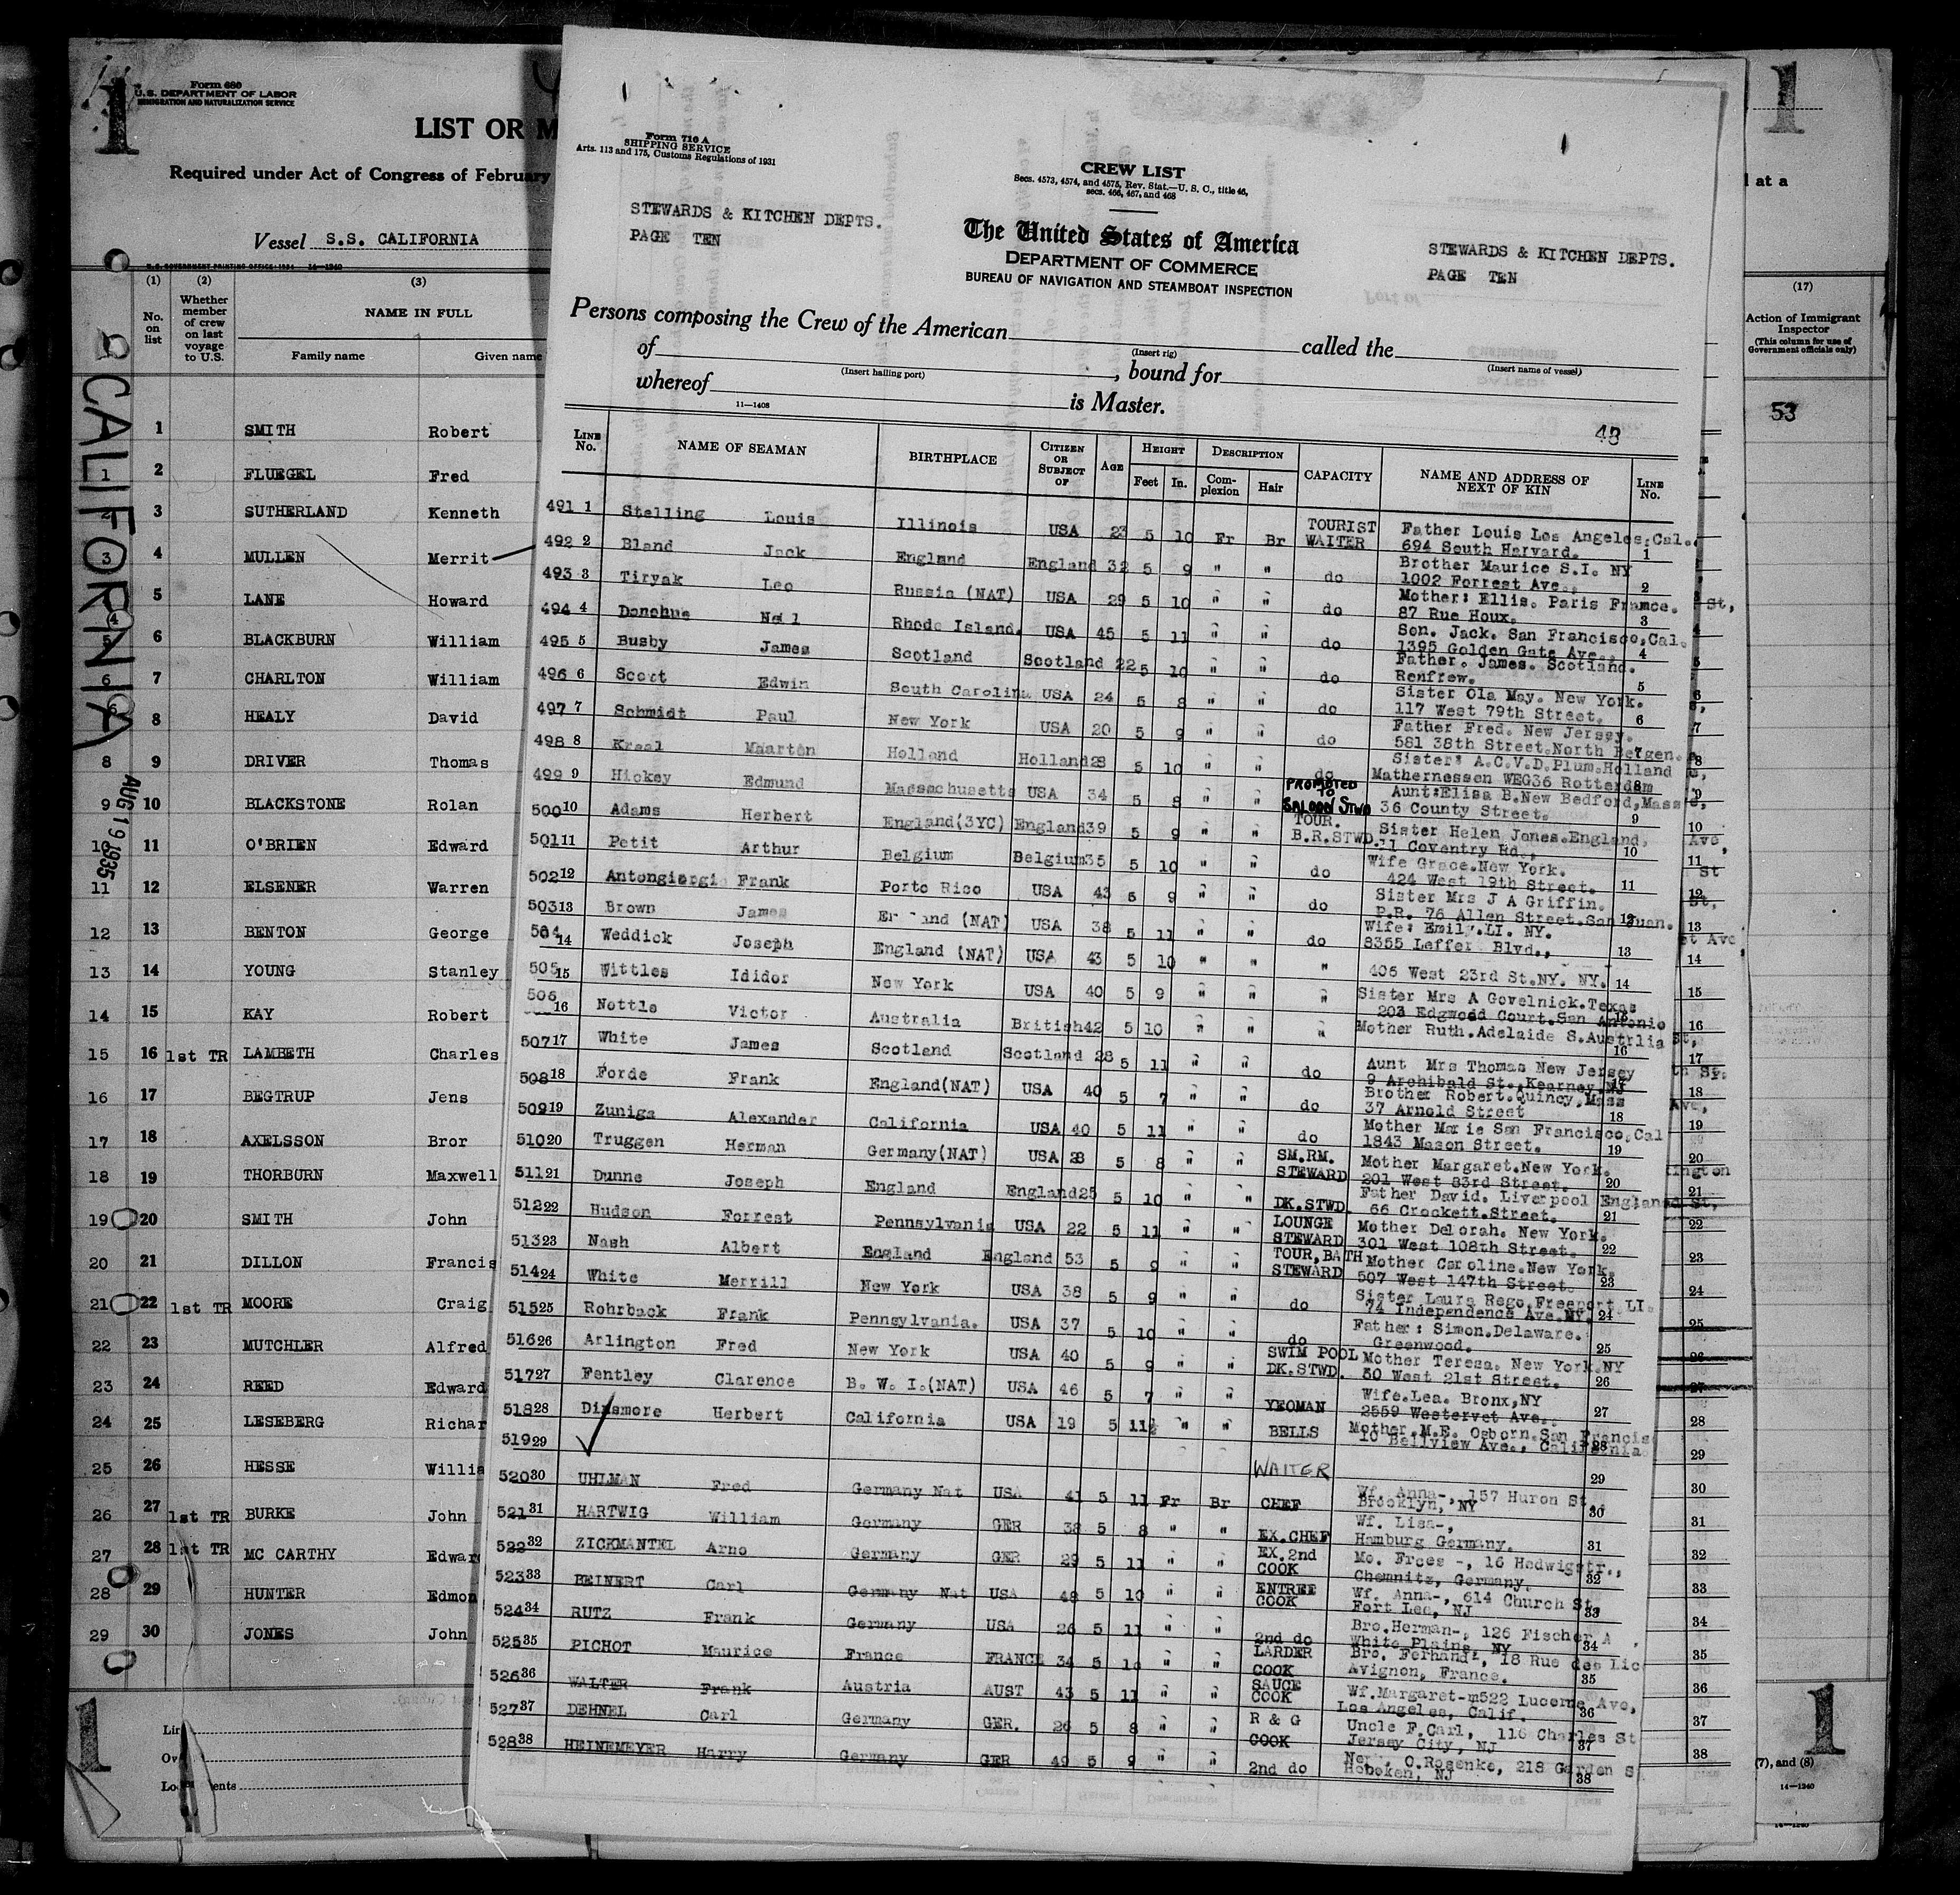 1
Form 680
U.S. DEPARTMENT OF LABOR
IMMIGRATION AND NATURALIZATION SERVICE
LIST OR M
Required under Act of Congress of February
Vessel S.S. CALIFORNIA
(1) (2) (3)
No. on list
Whether member of crew on last voyage to U.S.
NAME IN FULL
Family name Given name
1 SMITH Robert
1 2 FLUEGEL Fred
2 3 SUTHERLAND Kenneth
3 4 MULLEN Merrit
4 5 LANE Howard
5 6 BLACKBURN William
6 7 CHARLTON William
8 HEALY David
8 9 DRIVER Thomas
9 10 BLACKSTONE Rolan
10 11 O'BRIEN Edward
11 12 ELSENER Warren
12 13 BENTON George
13 14 YOUNG Stanley
14 15 KAY Robert
15 16 1st TR LAMBETH Charles
16 17 BEGTRUP Jens
17 18 AXELSSON Bror
18 19 THORBURN Maxwell
19 20 SMITH John
20 21 DILLON Francis
21 22 1st TR MOORE Craig
22 23 MUTCHLER Alfred
23 24 REED Edward
24 25 LESEBERG Richar
25 26 HESSE Willia
26 27 1st TR BURKE John
27 28 1st TR MC CARTHY Edwar
28 29 HUNTER Edmon
29 30 JONES John
CALIFORNIA
AUG 19 1935
1
Form 710 A
SHIPPING SERVICE
Arts. 113 and 175, Customs Regulations of 1931
CREW LIST
Secs. 4573, 4574, and 4575, Rev. Stat.—U. S. C., title 46,
secs. 466, 467, and 468
STEWARDS & KITCHEN DEPTS.
PAGE TEN
The United States of America
DEPARTMENT OF COMMERCE
BUREAU OF NAVIGATION AND STEAMBOAT INSPECTION
STEWARDS & KITCHEN DEPTS.
PAGE TEN
Persons composing the Crew of the American (Insert rig) called the (Insert name of vessel)
of (Insert hailing port), bound for
whereof is Master.
11—1408
48
LINE No. NAME OF SEAMAN BIRTHPLACE CITIZEN OR SUBJECT OF AGE HEIGHT Feet In. DESCRIPTION Complexion Hair CAPACITY NAME AND ADDRESS OF NEXT OF KIN LINE No.
491 1 Stelling Louis Illinois USA 23 5 10 Fr Br TOURIST WAITER Father Louis Los Angeles, Cal. 694 South Harvard. 1
492 2 Bland Jack England England 32 5 9 " " do Brother Maurice S.I. NY 1002 Forrest Ave., 2
493 3 Tiryak Leo Russia (NAT) USA 29 5 10 " " do Mother: Ellis. Paris France. 87 Rue Houx. 3
494 4 Donohue Neil Rhode Island. USA 45 5 11 " " do Son. Jack. San Francisco, Cal. 1395 Golden Gate Ave., 4
495 5 Busby James Scotland Scotland 22 5 10 " " do Father. James. Scotland. Renfrew. 5
496 6 Scott Edwin South Carolina USA 24 5 8 " " do Sister Ola May. New York. 117 West 79th Street. 6
497 7 Schmidt Paul New York USA 20 5 9 " " do Father Fred. New Jersey. 581 38th Street. North Bergen. 7
498 8 Kraal Maarten Holland Holland 28 5 10 " " do Sister: A.C.V.D. Plum. Holland Mathernessen WEG36 Rotterdam 8
499 9 Hickey Edmund Massachusetts USA 34 5 8 " " PROMOTED TO SALOON STWD Aunt: Elisa B. New Bedford, Mass 36 County Street. 9
500 10 Adams Herbert England(3YC) England 39 5 9 " " TOUR. B.R.STWD. Sister Helen Jones. England, 11 Coventry Rd., 10
501 11 Petit Arthur Belgium Belgium 35 5 10 " " do Wife Grace. New York. 424 West 19th Street. 11
502 12 Antongiorgi Frank Porto Rico USA 43 5 9 " " do Sister Mrs J A Griffin. P.R. 76 Allen Street. San Juan. 12
503 13 Brown James England (NAT) USA 38 5 11 " " do Wife: Emily. LI. NY. 8355 Leffer Blvd., 13
504 14 Weddick Joseph England (NAT) USA 43 5 10 " " " 405 West 23rd St. NY. NY. 14
505 15 Wittles Ididor New York USA 40 5 9 " " " Sister Mrs A Govelnick. Texas 203 Edgwood Court. San Antonio 15
506 16 Nottle Victor Australia British 42 5 10 " " " Mother Ruth. Adelaide S. Austrlia 16
507 17 White James Scotland Scotland 28 5 11 " " do Aunt Mrs Thomas New Jersey 9 Archibald St., Kearney, NJ 17
508 18 Forde Frank England(NAT) USA 40 5 7 " " do Brother Robert. Quincy, Mass 37 Arnold Street 18
509 19 Zuniga Alexander California USA 40 5 11 " " do Mother Marie San Francisco, Cal 1843 Mason Street. 19
510 20 Truggen Herman Germany(NAT) USA 28 5 8 " " SM.RM. STEWARD Mother Margaret. New York. 201 West 83rd Street. 20
511 21 Dunne Joseph England England 25 5 10 " " DK.STWD. Father David. Liverpool England 66 Crockett. Street. 21
512 22 Hudson Forrest Pennsylvania USA 22 5 11 " " LOUNGE STEWARD Mother Delorah. New York. 301 West 108th Street. 22
513 23 Nash Albert England England 53 5 9 " " TOUR, BATH STEWARD Mother Caroline. New York. 507 West 147th Street. 23
514 24 White Merrill New York USA 38 5 9 " " do Sister Laura Rego, Freeport, LI. 74 Independence Ave. NY. 24
515 25 Rohrback Frank Pennsylvania. USA 37 5 10 " " do Father: Simon. Delaware. Greenwood. 25
516 26 Arlington Fred New York USA 40 5 9 " " SWIM POOL DK.STWD. Mother Teresa. New York. NY 30 West 21st Street. 26
517 27 Fentley Clarence B. W. I.(NAT) USA 46 5 7 " " YEOMAN Wife. Lea. Bronx, NY 2559 Westervet Ave. 27
518 28 Dinsmore Herbert California USA 19 5 11½ " " BELLS Mother. M.E. Osborn. San Francis 10 Bellview Ave., California 28
519 29 WAITER 29
520 30 UHLMAN Fred Germany Nat USA 41 5 11 Fr Br CHEF Wf. Anna-, 157 Huron St, Brooklyn, NY 30
521 31 HARTWIG William Germany GER 38 5 8 " " EX.CHEF Wf. Lisa-, Hamburg Germany. 31
522 32 ZICKMANTEL Arno Germany GER 29 5 11 " " EX. 2nd COOK Mo. Frees -, 16 Hedwigstr., Chemnitz, Germany. 32
523 33 BEINERT Carl Germany Nat USA 48 5 10 " " ENTREE COOK Wf. Anna-, 614 Church St, Fort Lee, NJ 33
524 34 RUTZ Frank Germany USA 26 5 11 " " 2nd do Bro. Herman-, 126 Fischer A White Plains, NY 34
525 35 PICHOT Maurice France FRANCE 34 5 10 " " LARDER COOK Bro. Fernand-, 18 Rue des Lic Avignon, France. 35
526 36 WALTER Frank Austria AUST 43 5 11 " " SAUCE COOK Wf. Margaret-m522 Lucerne Ave, Los Angeles, Calif. 36
527 37 DEHNEL Carl Germany GER. 26 5 8 " " R & G COOK Uncle F. Carl, 116 Charles St Jersey City, NJ 37
528 38 HEINEMEYER Harry Germany GER 49 5 9 " " 2nd do O. Rosenke, 218 Garden S Hoboken, NJ 38
1
l at a
(17)
Action of Immigrant Inspector
(This column for use of Government officials only)
53
(7), and (8)
14—1240
1